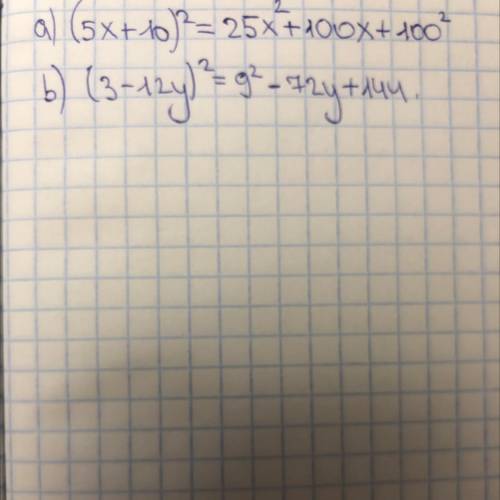 a) (5x+10)² = 25x² + 100x + 100²
b) (3-12y)² = 9² - 72y + 144.